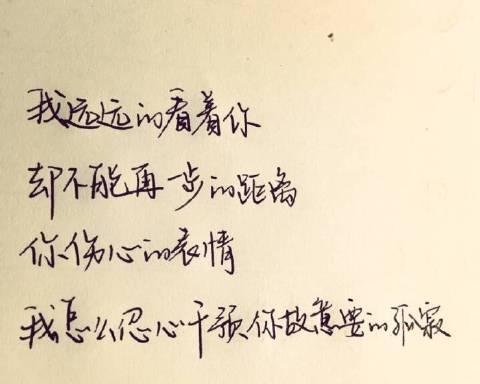 我远远的看着你
却不能再一步的距离
你伤心的表情
我怎么忍心干预你故意要的孤寂